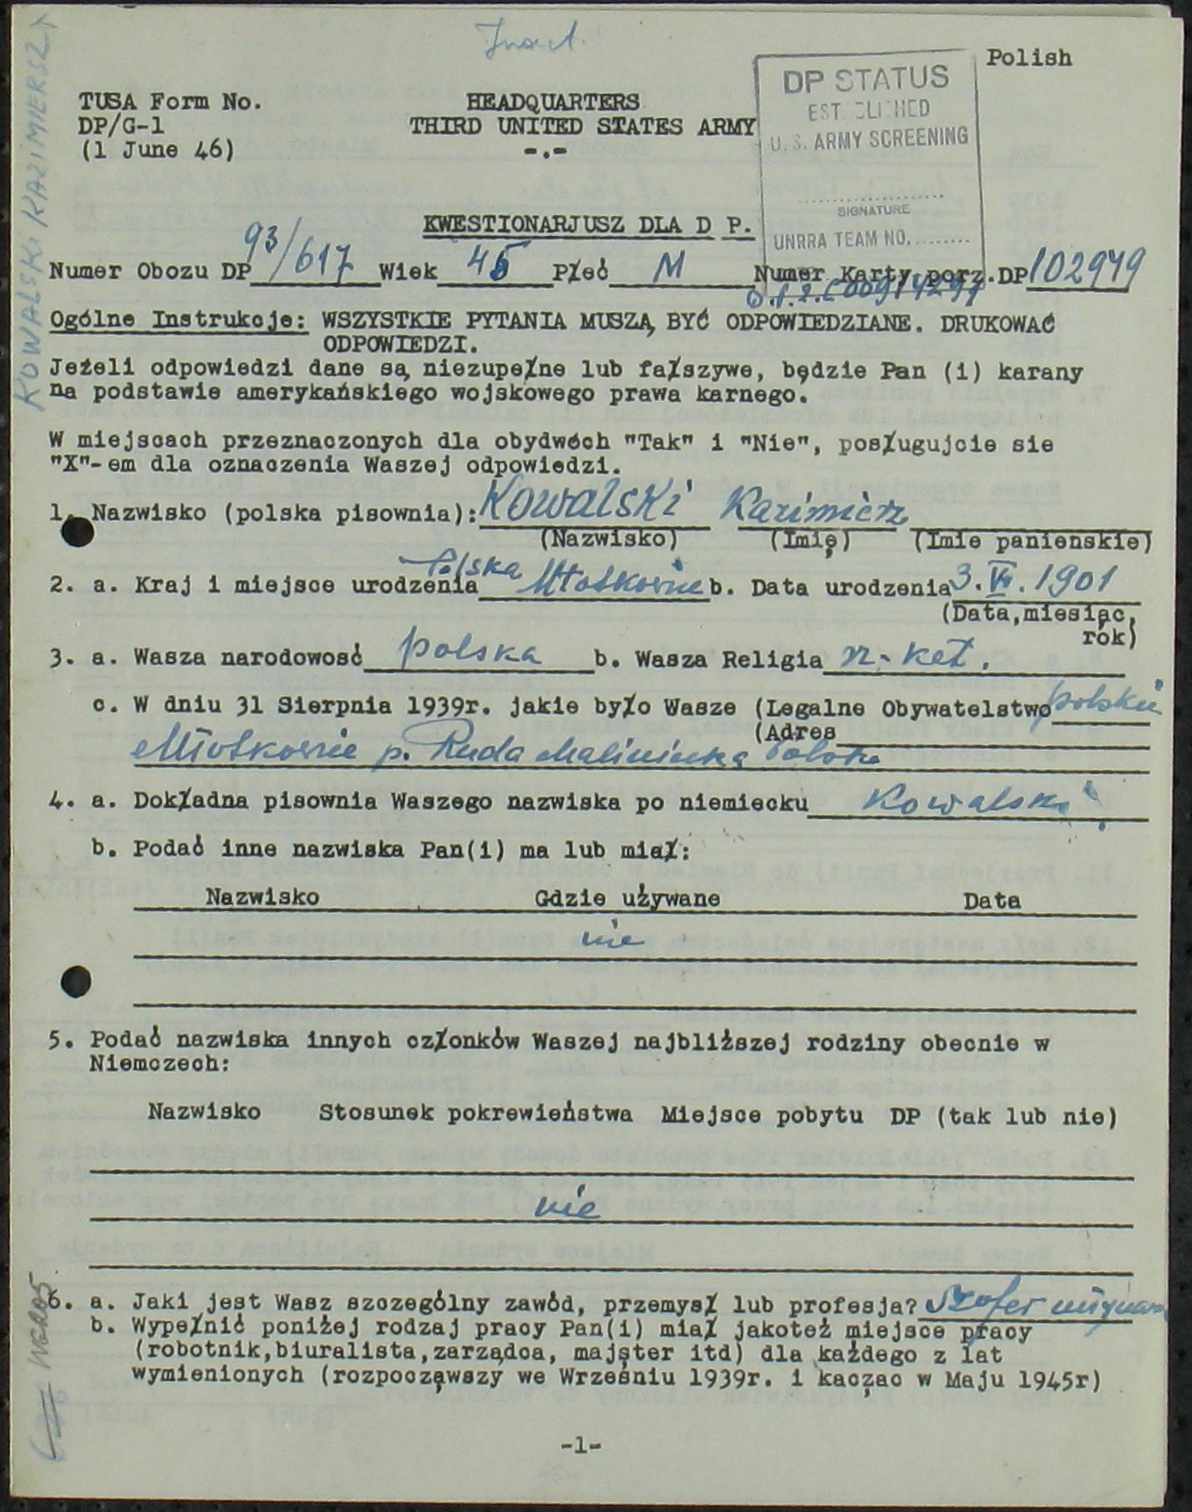 Polish
DP STATUS
U. S. ARMY SCREENING
SIGNATURE
UNRRA TEAM NO.
TUSA Form No.
DP/G-1
(1 June 46)
HEADQUARTERS
THIRD UNITED STATES ARMY
-.-
KOWALSKI KAZIMIERSZ
KWESTIONARJUSZ DLA D P.
Numer Obozu DP 93/617 Wiek 45 Płeć M Numer Karty porz.DP 102979
Ogólne Instrukcje: WSZYSTKIE PYTANIA MUSZĄ BYĆ ODPOWIEDZIANE. DRUKOWAĆ
ODPOWIEDZI.
Jeżeli odpowiedzi dane są niezupełne lub fałszywe, będzie Pan (i) karany
na podstawie amerykańskiego wojskowego prawa karnego.
W miejscach przeznaczonych dla obydwóch "Tak" i "Nie", posługujcie sie
"X"-em dla oznaczenia Waszej odpowiedzi.
1. Nazwisko (polska pisownia): Kowalski Kazimierz
(Nazwisko) (Imię) (Imie panienskie)
2. a. Kraj i miejsce urodzenia Polska b. Data urodzenia 3.VI.1901
(Data,miesiąc,
rók)
3. a. Wasza narodowosć polska b. Wasza Religia rz-kat.
c. W dniu 31 Sierpnia 1939r. jakie było Wasze (Legalne Obywatelstwo polskie
(Adres
p. Ruda Maleniecka Polska
4. a. Dokładna pisownia Waszego nazwiska po niemiecku Kowalski
b. Podać inne nazwiska Pan(i) ma lub miał:
Nazwisko Gdzie używane Data
nie
5. Podać nazwiska innych członków Waszej najbliższej rodziny obecnie w
Niemczech:
Nazwisko Stosunek pokrewieństwa Miejsce pobytu DP (tak lub nie)
nie
6. a. Jaki jest Wasz szczególny zawód, przemysł lub profesja? Szofer
b. Wypełnić poniżej rodzaj pracy Pan(i) miał jakoteż miejsce pracy
(robotnik,biuralista,zarządca, majster itd) dla każdego z lat
wymienionych (rozpocząwszy we Wrześniu 1939r. i kacząc w Maju 1945r)
-1-